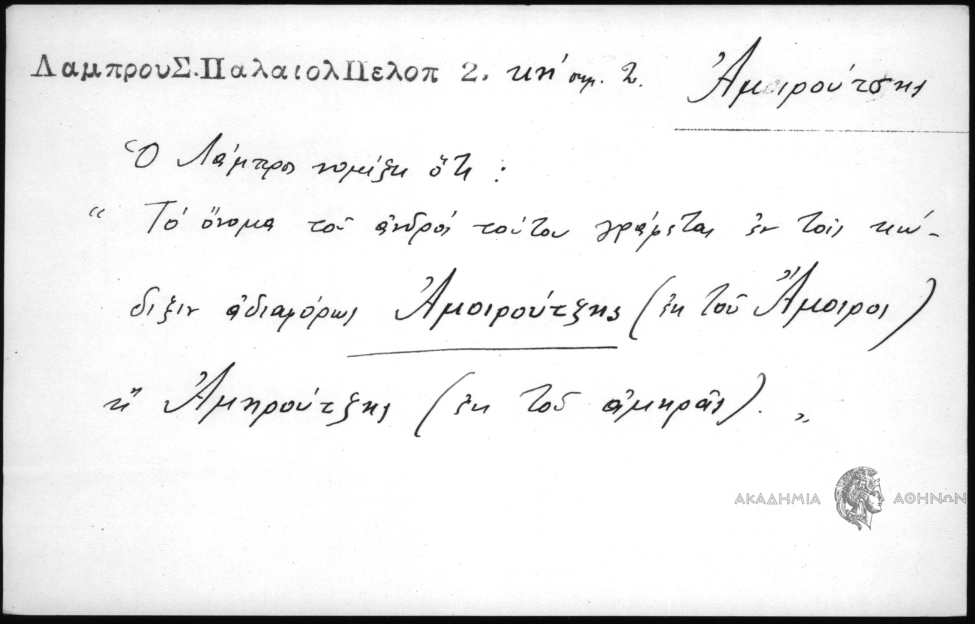 ΛαμπρουΣ.ΠαλαιολΠελοπ 2. κη' σημ. 2. Ἀμοιρούτσης
Ὁ Λάμπρος νομίζει ὅτι :
“ Τὸ ὄνομα τοῦ ἀνδρὸς τούτου γράφεται ἐν τοῖς κώ-
διξιν ἀδιαφόρως Ἀμοιρούτζης (ἐκ τοῦ Ἄμοιρος)
ἢ Ἀμηρούτζης (ἐκ τοῦ ἀμηρᾶς). „
ΑΚΑΔΗΜΙΑ ΑΘΗΝΩΝ